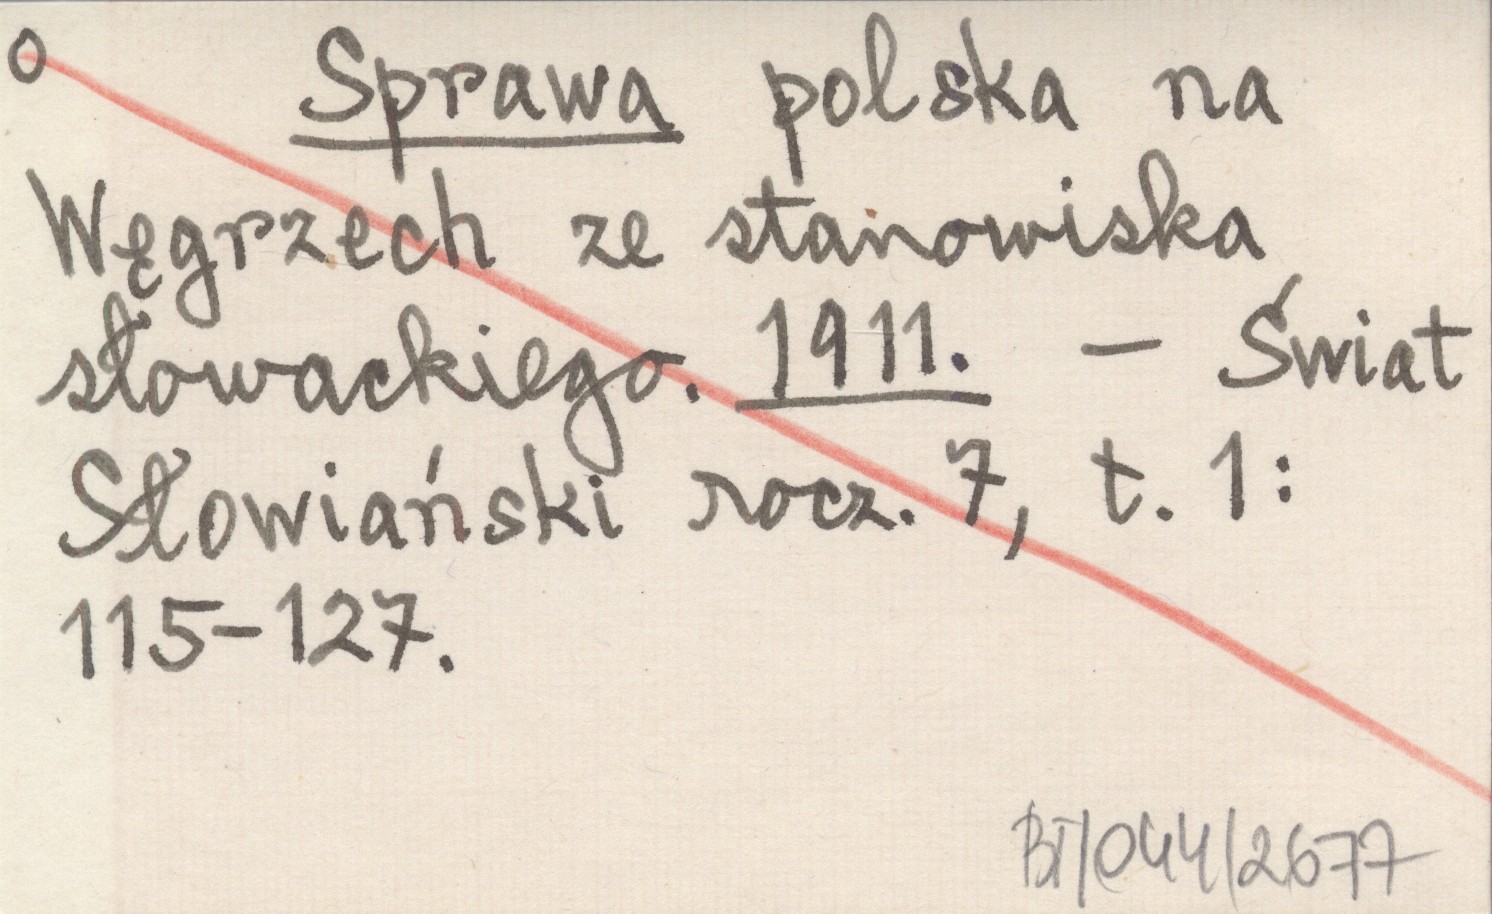 O Sprawa polska na
Węgrzech ze stanowiska
słowackiego. 1911. – Świat
Słowiański rocz. 7, t. 1:
115-127.
BT/044/2677